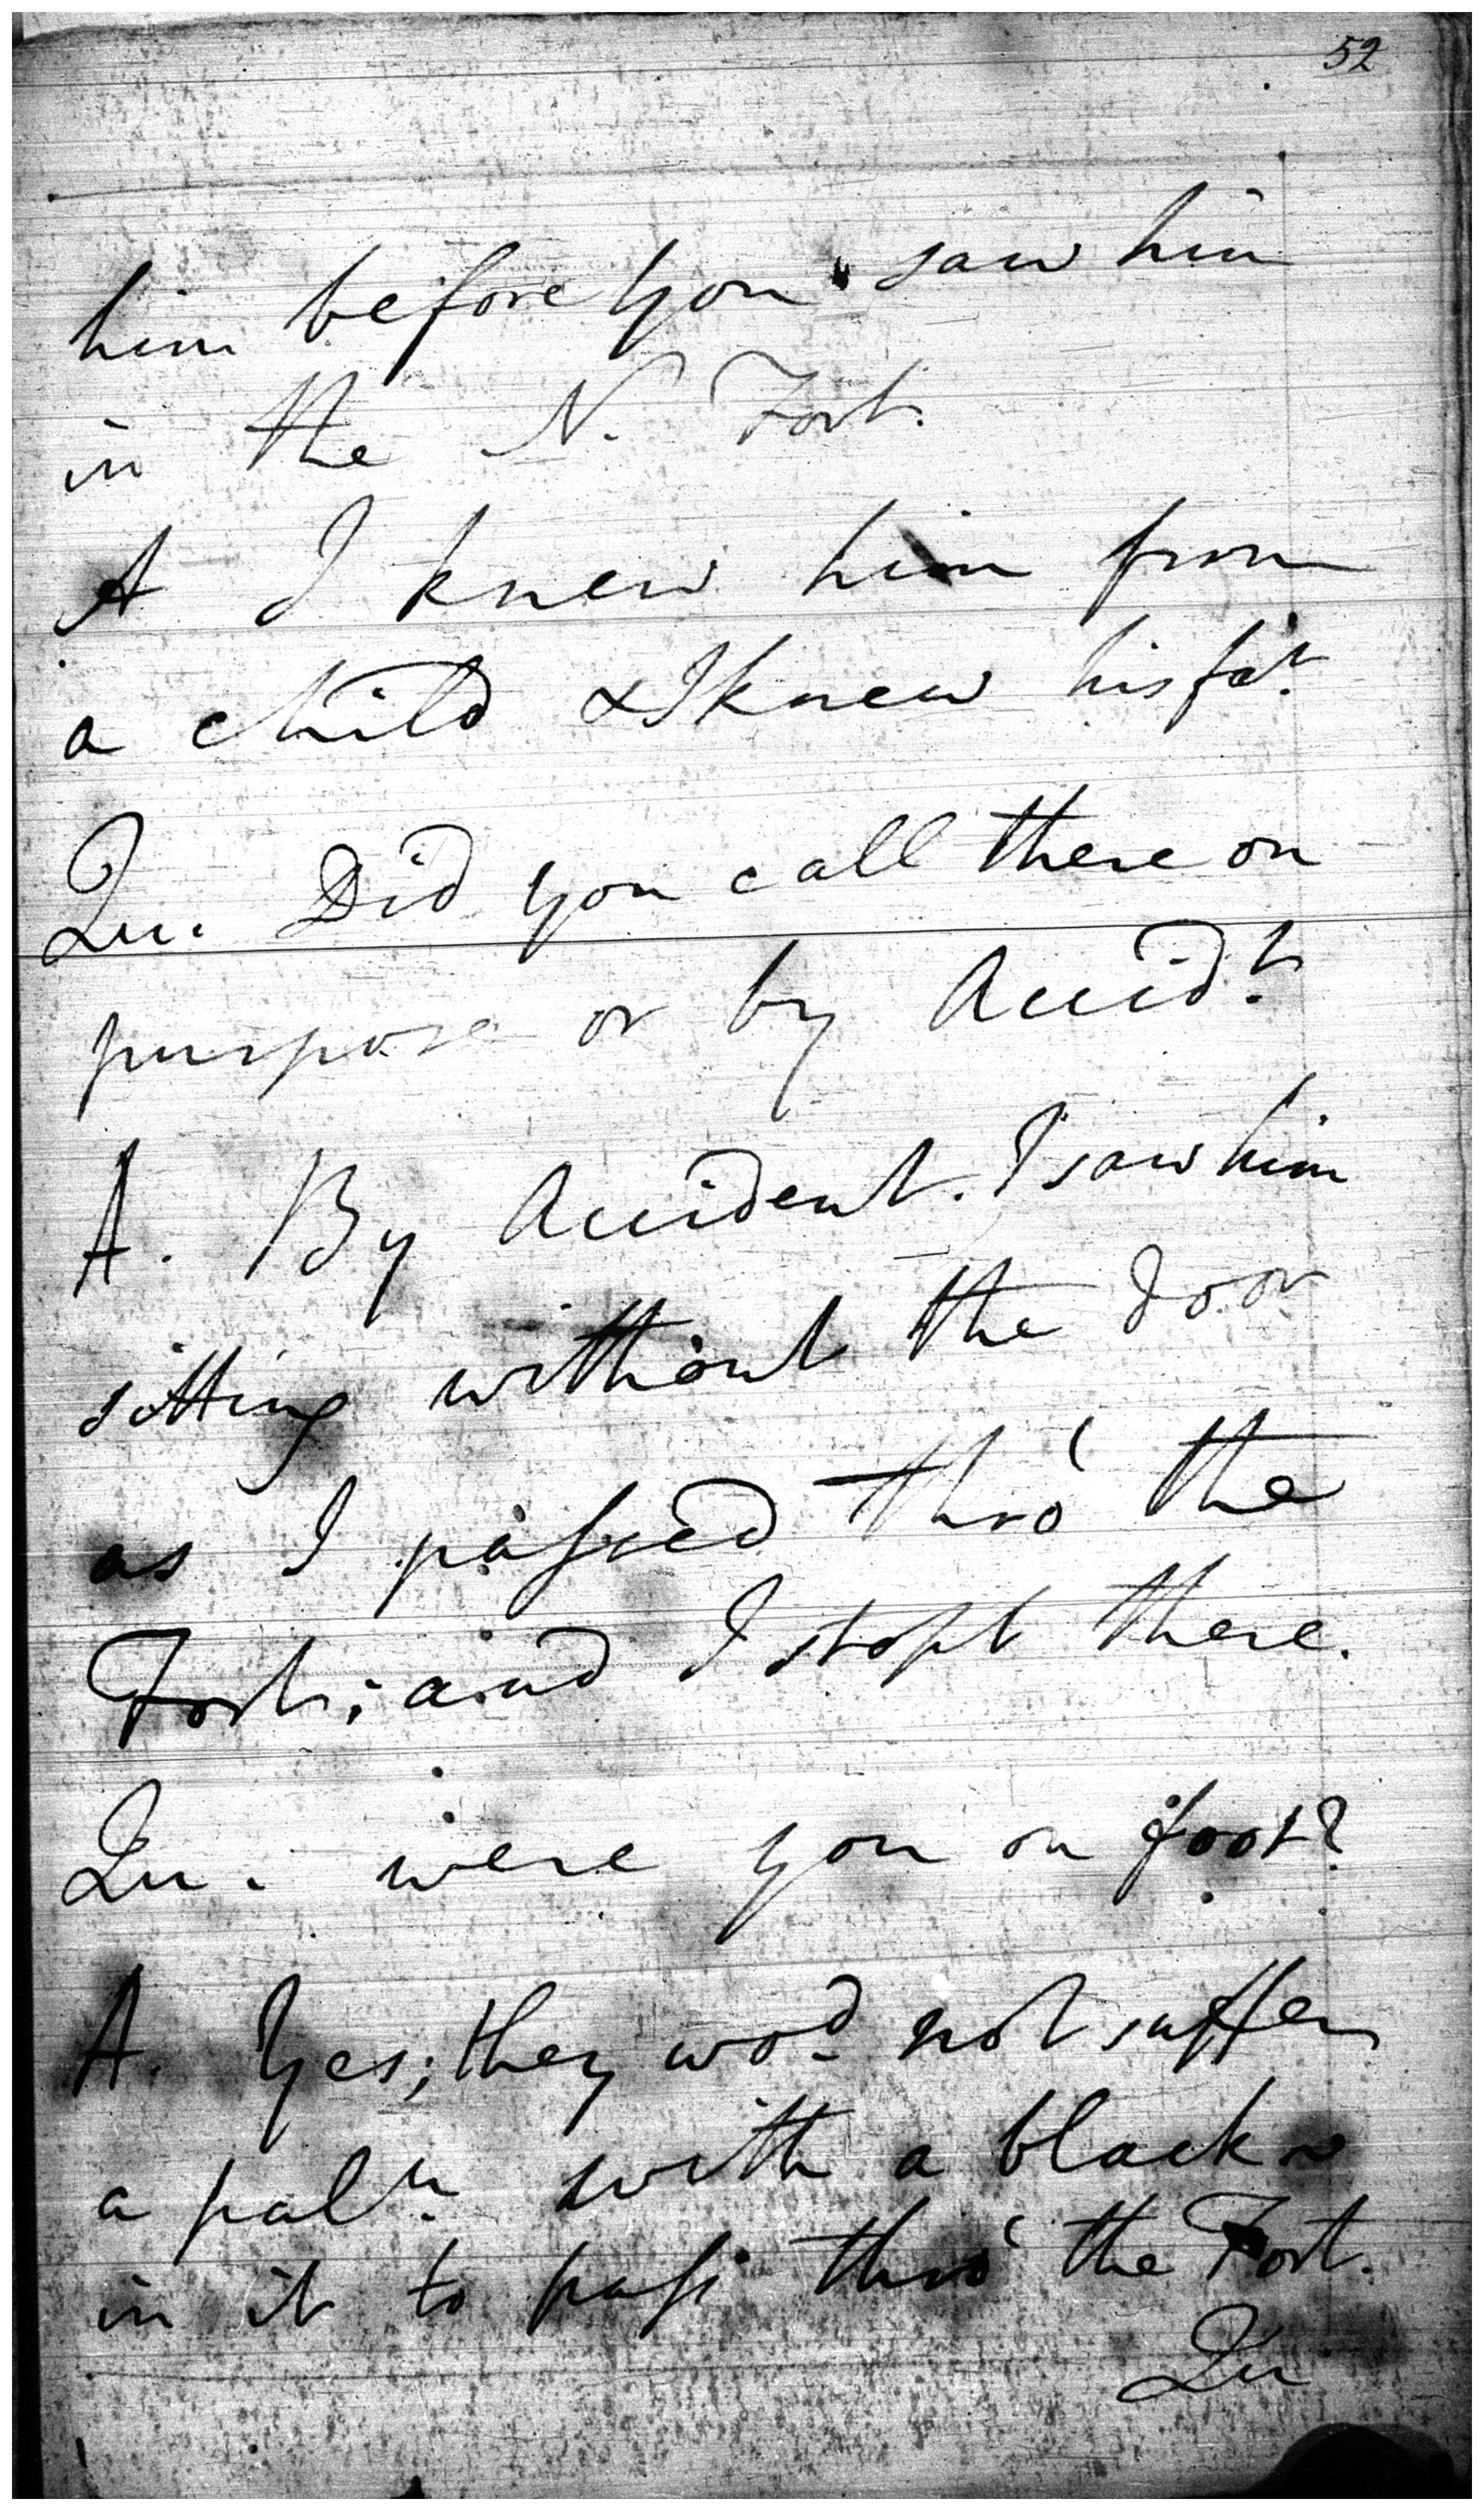 52
him before you saw him
in the N. Fort.
A I knew him from
a child & I knew his far.
Qu. Did you call there on
purpose or by Accidt.
A. By Accident. I saw him
sitting without the door
as I passed thro' the
Fort; and I stopt there.
Qu. were you on foot?
A. Yes; they wod. not suffer
a paln. with a black
in it to pass thro' the Fort.
Qu